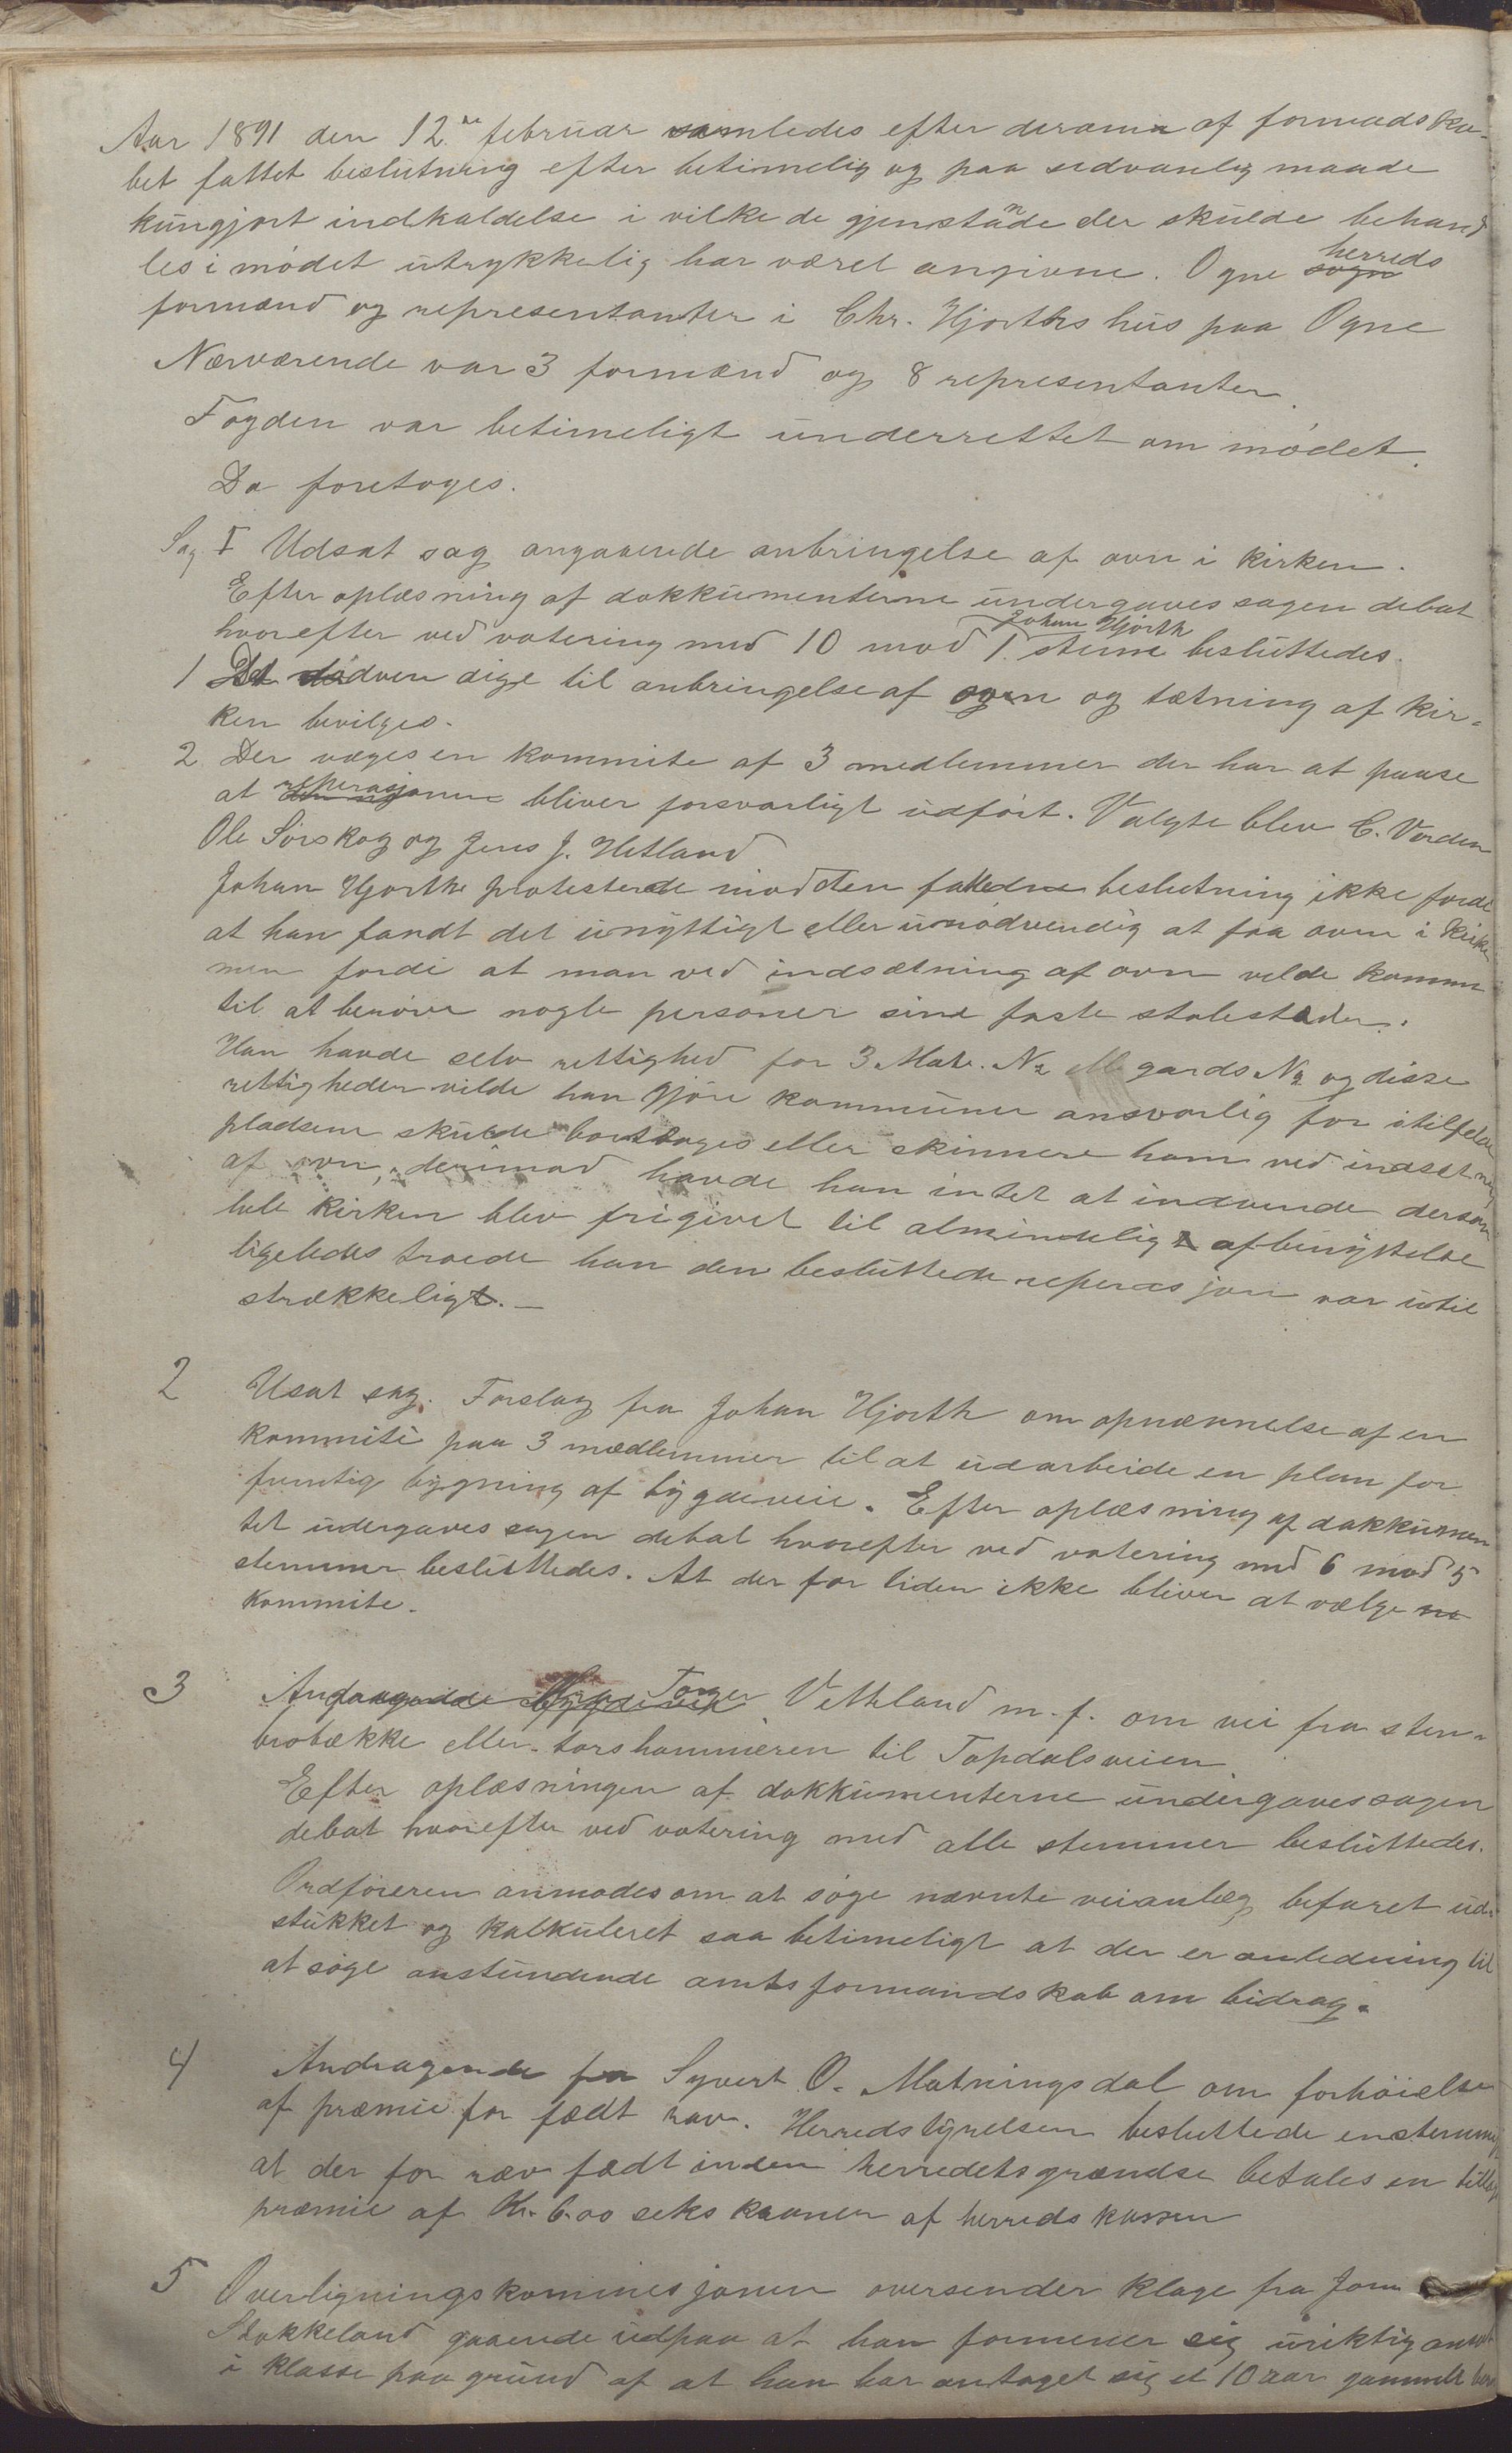 Aar 1891 den 12te februar samledes efter derom af formadska-
bet fattet beslutning efter betimelig og paa sedvanlig maade
kungjort indkaldelse i vilke de gjenstande der skulde behand
les i mødet utrykkelig har været angivne. Ogne herreds
formænd og representanter i Chr. Hjorths hus paa Ogne
Nærværende var 3 formænd og 8 representanter.
Fogden var betimeligt underrettet om mødet.
Da foretoges.
Sag I Udsat sag angaaende anbringelse af ovn i kirken.
Efter oplæsning af dokkumenterne undergaves sagen debat
hvorefter ved votering med 10 mod 1 Johan Hjorth stemme besluttedes.
1 Det nødvendige til anbringelse af ovn og tætning af kir-
ken bevilges.
2 Der væges en kommite af 3 medlemmer der har at paase
at reperasjonen bliver forsvarligt udført. Valgte blev C. Varden
Ole Sirskog og Jens J. Hetland
Johan Hjorth protesterede mod den fattede beslutning ikke fordi
at han fandt det unyttigt eller unødvendig at faa ovn i kirke
men fordi at man ved indsætning af ovn vilde komme
til at berøve nogle personer sine faste stolestader.
Han havde selv rettighed for 3 Matr. No gards No og disse
rettigheder vilde han gjøre kommunen ansvarlig for i tilfelde
pladsene skulde borttages eller skinnere ham ved indsætning
af ovn, derimod havde han intet at indvende dersom
hele kirken blev frigivet til almindelig afbenyttelse
ligeledes troede han den besluttede reperasjon var util
strækkeligt.-
2 Usat sag. Forslag fra Johan Hjorth om opnævnelse af en
kommite paa 3 mædlemmer til at udarbeide en plan for
fremtig bygning af bygdeveie. Efter oplæsning af dokkumen
tet undergaves sagen debat hvorefter ved votering med 6 mod 5
stemmer besluttedes. At der for tiden ikke bliver at vælge no
kommite.
3 Andragende fra Torger Vethland m. f. om vei fra sten-
brobække eller torshammeren til Topdalsveien
Efter oplæsningen af dokkumenterne undergaves sagen
debat hvorefter ved votering med alle stemmer besluttedes.
Ordføreren anmodes om at søge nævnte veianlæg befaret ud-
stukket og kalkuleret saa betimeligt at der er anledning til
at søge anstundende amtsformandskab om bidrag.
4 Andragende fra Syvert O. Matningsdal om forhøielse
af præmie for fædt ræv. Herredstyrelsen besluttede enstemmig
at der for ræv fædt inden herredets grændse betales en tillægs
præmie af Kr. 6.00 seks kroner af herredskassen
5 Overligningskommisjonen oversender klage fra Jonn
Stokkeland gaaende udpaa at han formener sig uriktig ansat
i klasse paa grund af at han har antaget sig et 10 aar gammelt barn